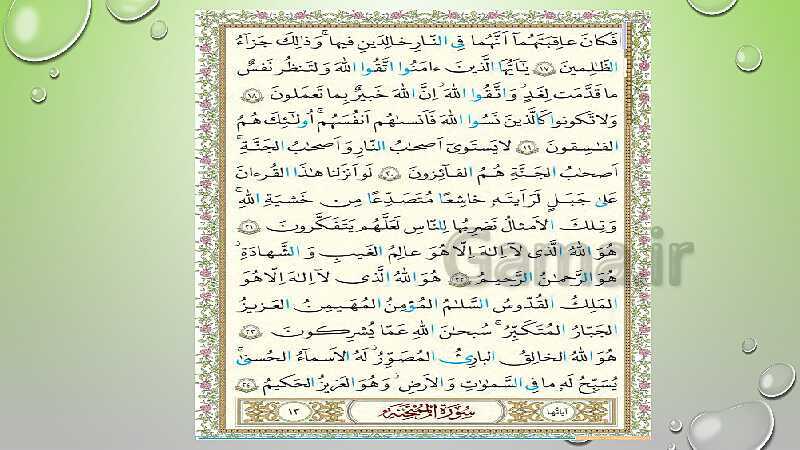 فَكَانَ عَاقِبَتَهُمَا أَنَّهُمَا فِي النَّارِ خَالِدَيْنِ فِيهَا ۚ وَذَٰلِكَ جَزَاءُ
الظَّالِمِينَ ﴿١٧﴾ يَا أَيُّهَا الَّذِينَ ءَامَنُوا اتَّقُوا اللَّهَ وَلْتَنظُر نَفسٌ
ما قَدَّمَت لِغَدٍ ۖ وَاتَّقُوا اللَّهَ ۚ إِنَّ اللَّهَ خَبيرٌ بِما تَعمَلونَ ﴿١٨﴾
وَلا تَكونوا كَالَّذينَ نَسُوا اللَّهَ فَأَنساهُم أَنفُسَهُم ۚ أُولٰئِكَ هُمُ
الفاسِقونَ ﴿١٩﴾ لا يَستَوي أَصحابُ النّارِ وَأَصحابُ الجَنَّةِ ۚ
أَصحابُ الجَنَّةِ هُمُ الفائِزونَ ﴿٢٠﴾ لَو أَنزَلنا هٰذَا القُرءانَ
عَلىٰ جَبَلٍ لَرَأَيتَهُ خاشِعًا مُتَصَدِّعًا مِن خَشيَةِ اللَّهِ ۚ
وَتِلكَ الأَمثالُ نَضرِبُها لِلنّاسِ لَعَلَّهُم يَتَفَكَّرونَ ﴿٢١﴾
هُوَ اللَّهُ الَّذي لا إِلٰهَ إِلّا هُوَ ۖ عالِمُ الغَيبِ وَالشَّهادَةِ ۖ
هُوَ الرَّحمٰنُ الرَّحيمُ ﴿٢٢﴾ هُوَ اللَّهُ الَّذي لا إِلٰهَ إِلّا هُوَ
المَلِكُ القُدّوسُ السَّلامُ المُؤمِنُ المُهَيمِنُ العَزيزُ
الجَبّارُ المُتَكَبِّرُ ۚ سُبحانَ اللَّهِ عَمّا يُشرِكونَ ﴿٢٣﴾
هُوَ اللَّهُ الخالِقُ البارِئُ المُصَوِّرُ ۖ لَهُ الأَسماءُ الحُسنىٰ ۚ
يُسَبِّحُ لَهُ ما فِي السَّماواتِ وَالأَرضِ ۖ وَهُوَ العَزيزُ الحَكيمُ ﴿٢٤﴾
آیاتُها سُورَةُ المُمتَحِنَةِ ١٣
Gama.ir